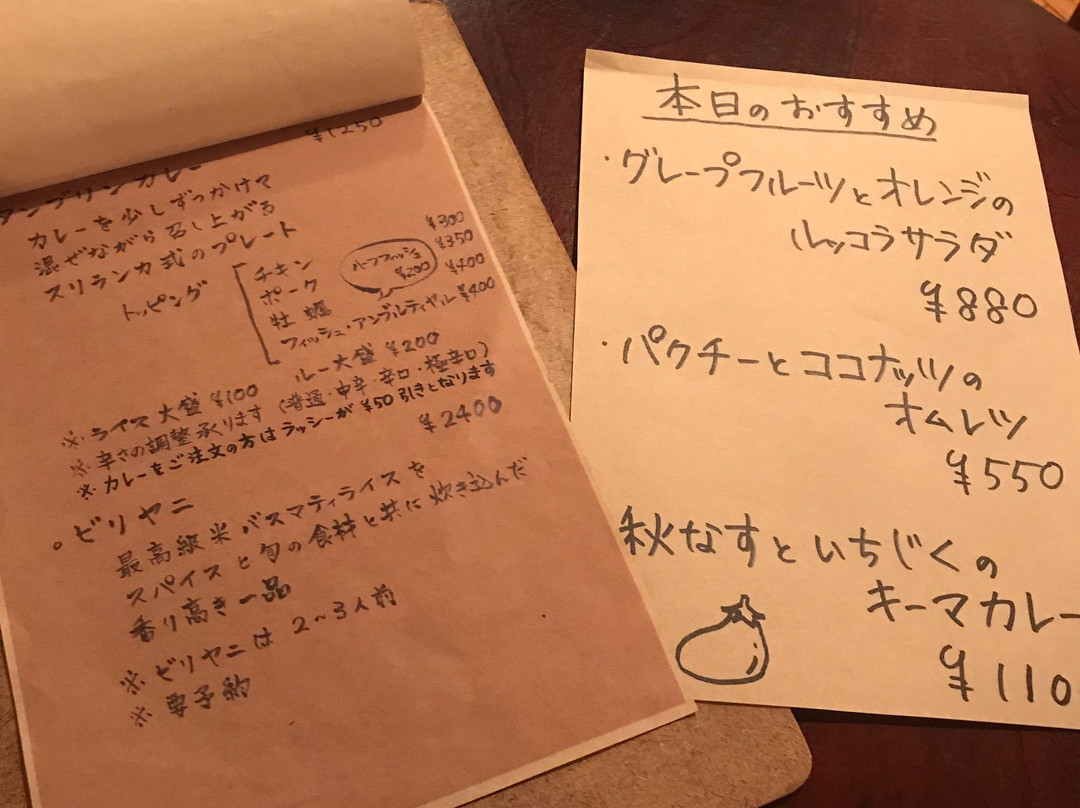 ¥1250
ランプリンカレー
カレーを少しずつかけて
混ぜながら召し上がる
スリランカ式のプレート
トッピング
チキン ¥300
ポーク ¥350
牡蠣 ¥400
フィッシュ・アンブルティヤル ¥400
ハーフフィッシュ
¥200
※ライス大盛 ¥100 ルー大盛 ¥200
※辛さの調整承ります (普通・中辛・辛口・極辛口)
※カレーをご注文の方はラッシーが¥50引きとなります
¥2400
○ビリヤニ
最高級米バスマティライスを
スパイスと旬の食材と共に炊き込んだ
香り高き一品
※ビリヤニは2~3人前
※要予約
本日のおすすめ
・グレープフルーツとオレンジの
ルッコラサラダ
¥880
・パクチーとココナッツの
オムレツ
¥550
秋なすといちじくの
キーマカレー
¥110